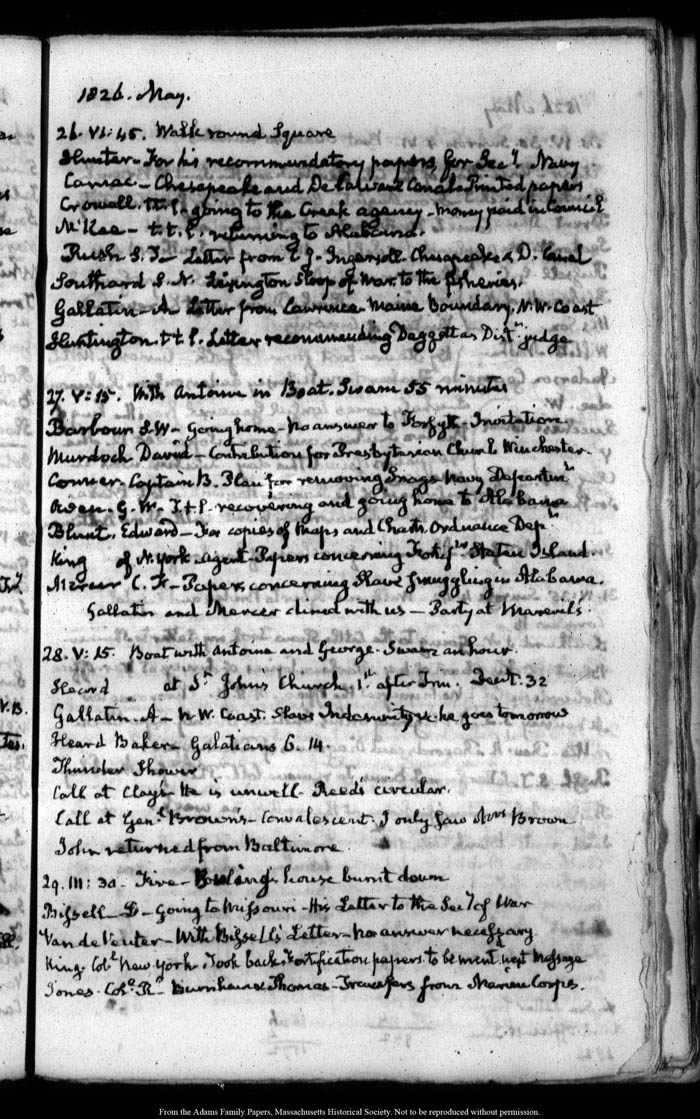 1826. May.
26. VI: 45. Walk round Square
Hunter - For his recommendatory papers, for Secy. Navy
Camac - Chesapeake and Delaware Canal. Printed papers
Crowell. t.t.l. going to the Creek agency - money paid in Council
McKee - t.t.l. returning to Alabama.
Rush. S.T. Letter from C J. Ingersoll Chesapeake & D. Canal
Southard S. N. Lexington Sloop of War, to the fisheries.
Gallatin - A Letter from Lawrence. Maine Boundary. N.W. Coast
Huntington. t t l. Letter recommending Daggett as Distt. judge
27. V: 15. With Antoine in Boat. Swam 55 minutes
Barbour S.W - Going home - no answer to Forsyth - Invitation.
Murdoch David - Contribution for Presbyterian Church Winchester.
Conner. Captain B. Plan for removing Snags Navy Departmt
Owen. G. W. T.t.l. recovering and going home to Alabama
Blunt. Edward - For copies of Maps and Charts. Ordnance Dept.
King of N. York. agent. Papers concerning Fortifns. Staten Island.
Mercer C. F - Papers concerning Slave smuggling in Alabama.
Gallatin and Mercer dined with us - Party at Mareuil's.
28. V: 15. Boat with Antoine and George. Swam an hour.
Heard at St. John's Church 1st. after Trin. Deut. 32
Gallatin. A - N.W. Coast. Slave Indemnity &c. he goes tomorrow
Heard Baker - Galatians 6. 14.
Thunder Shower
Call at Clay's He is unwell. Reed's circular.
Call at Genl. Brown's - Convalescent. I only saw Mrs Brown
John returned from Baltimore
29. III: 30. Fire - house burnt down
Bissell - D - Going to Missouri - His Letter to the Secy. of War
Van de Venter - With Bissell's Letter - no answer necessary
King. Coll. New York. Took back Fortification papers to be ment. next Message
Jones. Coll. R. Burnham & Thomas - Transfers from Marine Corps.
From the Adams Family Papers, Massachusetts Historical Society. Not to be reproduced without permission.